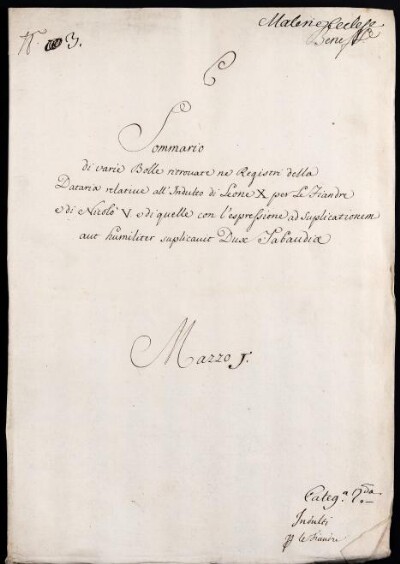 N. 3.
Materie Eccles.
Benef.
C
Sommario
di varie Bolle ritrovate ne Registri della
Dataria relative all'Indulto di Leone X per Le Fiandre
e di Nicolò V e di quelle con l'espressione ad suplicationem
aut humiliter suplicavit Dux Sabaudiæ
Mazzo 1.
Categ.a 7.da
Indulti
p le Fiandre